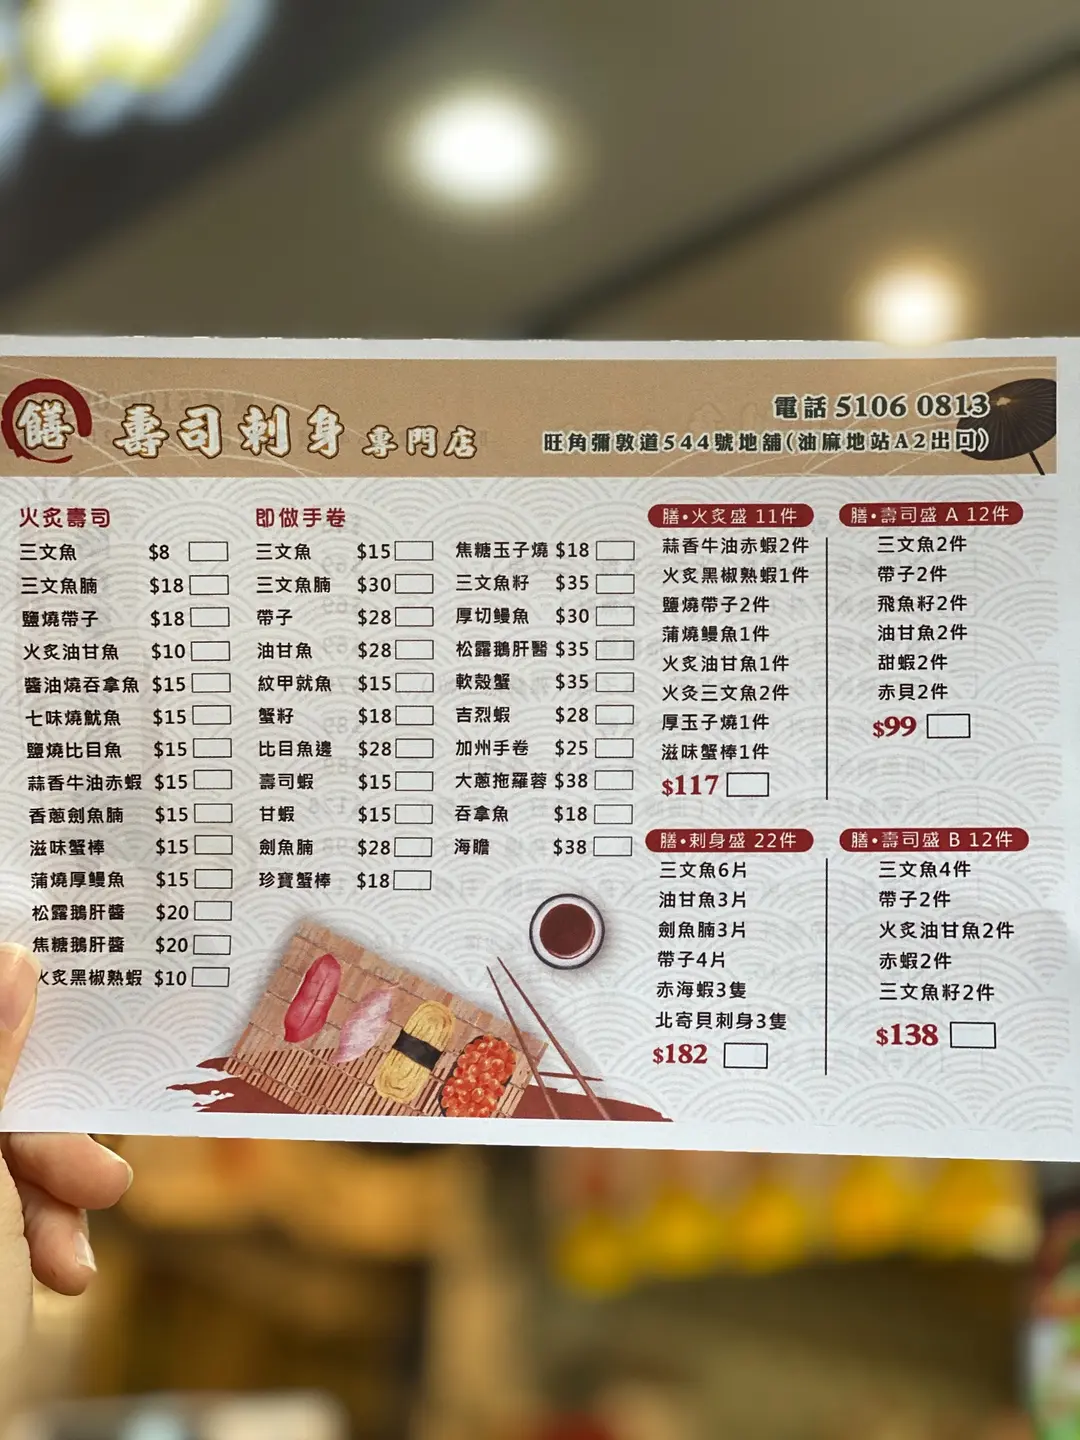 饍 壽司刺身 專門店
電話 5106 0813
旺角彌敦道544號地舖(油麻地站A2出口)
火炙壽司
三文魚 $8
三文魚腩 $18
鹽燒帶子 $18
火炙油甘魚 $10
醬油燒吞拿魚 $15
七味燒魷魚 $15
鹽燒比目魚 $15
蒜香牛油赤蝦 $15
香蔥劍魚腩 $15
滋味蟹棒 $15
蒲燒厚鰻魚 $15
松露鵝肝醬 $20
焦糖鵝肝醬 $20
火炙黑椒熟蝦 $10
即做手卷
三文魚 $15
三文魚腩 $30
帶子 $28
油甘魚 $28
紋甲就魚 $15
蟹籽 $18
比目魚邊 $28
壽司蝦 $15
甘蝦 $15
劍魚腩 $28
珍寶蟹棒 $18
焦糖玉子燒 $18
三文魚籽 $35
厚切鰻魚 $30
松露鵝肝醫 $35
軟殼蟹 $35
吉烈蝦 $28
加州手卷 $25
大蔥拖羅蓉 $38
吞拿魚 $18
海瞻 $38
膳•火炙盛 11件
蒜香牛油赤蝦2件
火炙黑椒熟蝦1件
鹽燒帶子2件
蒲燒鰻魚1件
火炙油甘魚1件
火灸三文魚2件
厚玉子燒1件
滋味蟹棒1件
$117
膳•壽司盛 A 12件
三文魚2件
帶子2件
飛魚籽2件
油甘魚2件
甜蝦2件
赤貝2件
$99
膳•刺身盛 22件
三文魚6片
油甘魚3片
劍魚腩3片
帶子4片
赤海蝦3隻
北寄貝刺身3隻
$182
膳•壽司盛 B 12件
三文魚4件
帶子2件
火炙油甘魚2件
赤蝦2件
三文魚籽2件
$138